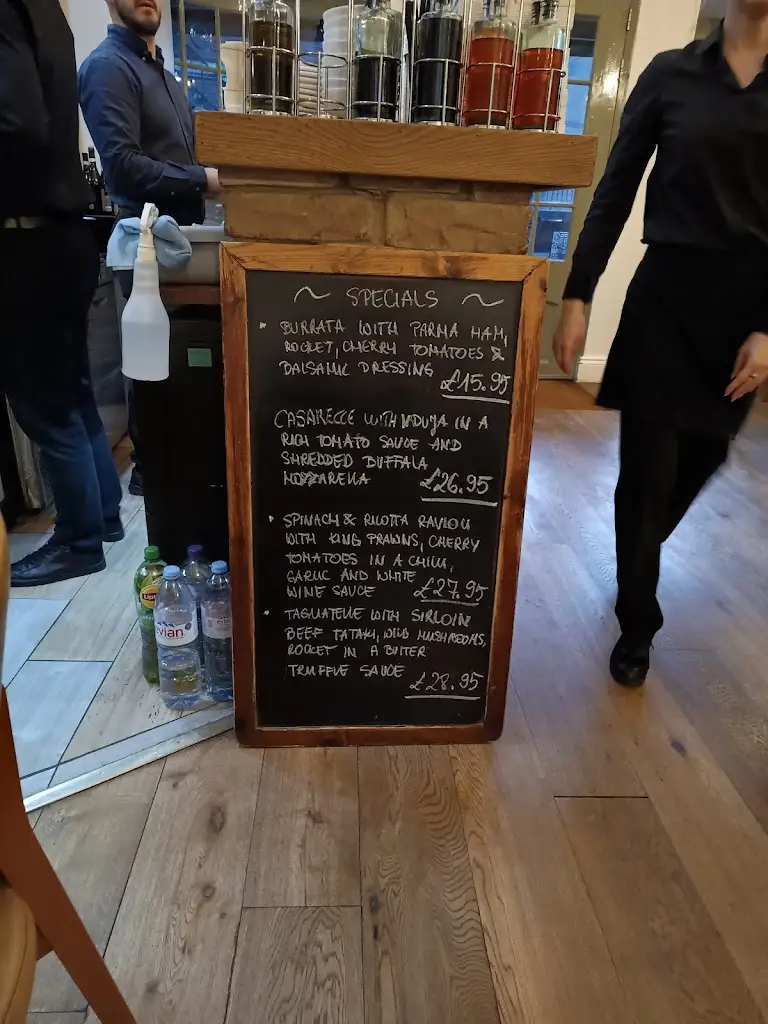 ~ SPECIALS ~
• BURRATA WITH PARMA HAM,
ROCKET, CHERRY TOMATOES &
BALSAMIC DRESSING £15.95
CASARECCE WITH NDUJA IN A
RICH TOMATO SAUCE AND
SHREDDED BUFFALA
MOZZARELLA £26.95
• SPINACH & RICOTTA RAVIOLI
WITH KING PRAWNS, CHERRY
TOMATOES IN A CHILLI,
GARLIC AND WHITE
WINE SAUCE £27.95
• TAGLIATELLE WITH SIRLOIN
BEEF TATAKI, WILD MUSHROOMS,
ROCKET IN A BUTTER
TRUFFLE SAUCE £28.95
Lipton
evian